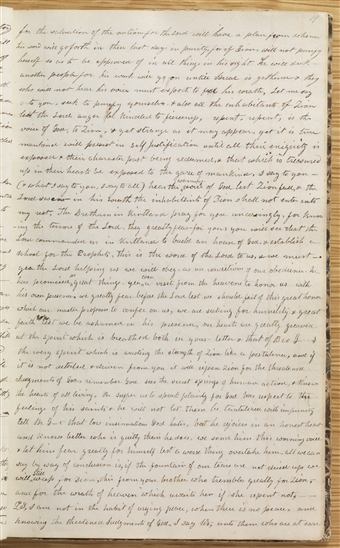 19
for the salvation of the nations for the Lord will have a place from whence
his word will go forth in these last days in purity, for if Zion will not purify
herself so as to be approved of in all things in his sight he will seek
another people for his work will go on untill Israel is gathered & they
who will not hear his voice must expect to feel his wrath, Let me say
to you, seek to purify yourselves, & also all the inhabitants of Zion
lest the Lords anger be kindled to fierceness, repent, repent, is the
voice of God, to Zion, & yet strange as it may appear, yet it is true
mankind will persist in self justification until all their eniquity is
exposed & their character past being redeemed, & that which is treasured
up in their hearts be exposed to the gaze of mankind, I say to you—
(& what I say to you, I say to all) hear the warning voice of God lest Zion fall, & the
Lord swear in his wrath the inhabitants of Zion shall not enter into
my rest, The Brethren in Kirtland pray for you unceasingly, for knowing
the terrors of the Lord, they greatly fear for you; you will see that the
Lord commanded us in Kirtland to build an house of God, & establish a
school for the Prophets, this is the word of the Lord to us, & we must—
yea the Lord helping us we will obey, as on conditions of our obedience, he
has promised us great things, yea even a visit from the heavens to honor us with
his own presence, we greatly fear before the Lord lest we should fail of this great honor
which our master proposes to confer on us, we are seeking for humility & great
faith lest we be ashamed in his presence, our hearts are greatly grieved
at the spirit which is breathed both in your letter & that of Bro G—s
the very spirit which is wasting the strength of Zion like a pestilence, and if
it is not detected & driven from you it will ripen Zion for the threatened
Judgments of God, remember God sees the secret springs of human action, & knows
the hearts of all living, Br suffer us to speak plainly for God has respect to the
feelings of his saints & he will not let them be tantalized with impunity
tell Br G—t that low insinuations God hates, but he rejoices in an honest heart
and knows better who is guilty than he does, we send him this warning voice
& let him fear greatly for himself lest a worse thing overtake him, all we can
say by way of conclusion is, if the fountain of our tears are not dried up we
will still weep for Zion, this from your brother who trembles greatly for Zion,—
and for the wrath of heaven which awaits her if she repent not,—
P.S. I am not in the habit of crying peace, when there is no peace, and
knowing the threatened Judgments of God, I say Wo, unto them who are at ease